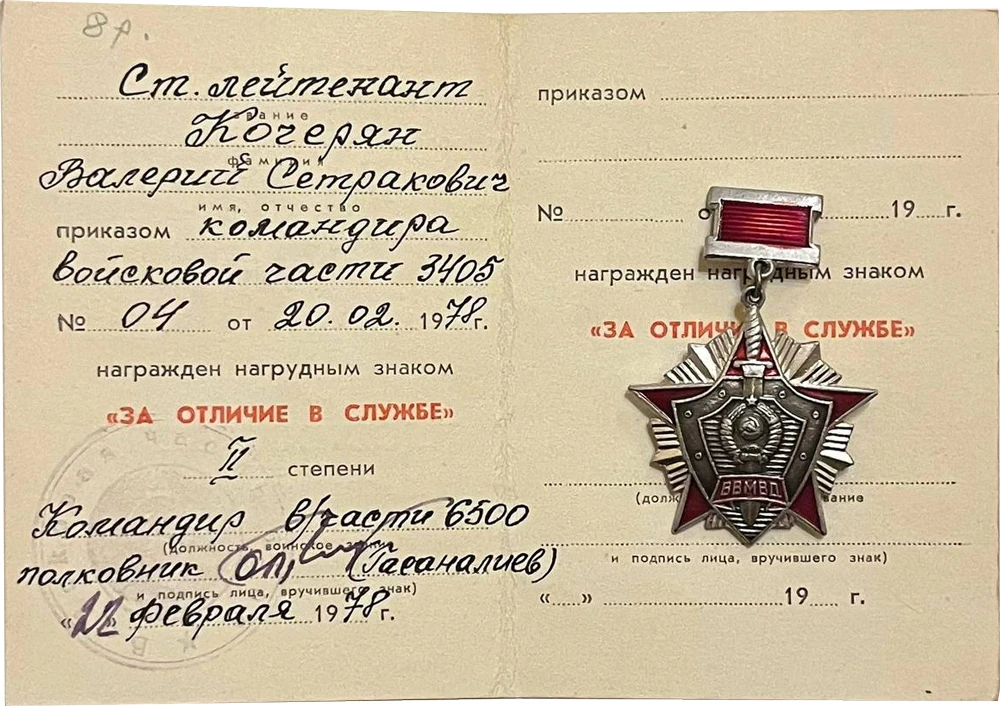 8р.
Ст. лейтенант
звание
Кочерян
фамилия
Валерий Сетракович
имя, отчество
приказом командира
войсковой части 3405
№ 04 от 20.02. 1978г.
награжден нагрудным знаком
«ЗА ОТЛИЧИЕ В СЛУЖБЕ»
II степени
Командир в/части 6500
(должность, воинское
полковник (Гасаналиев)
и подпись лица, вручившего знак)
«22» февраля 1978 г.
приказом
№ 19 г.
награжден нагрудным знаком
«ЗА ОТЛИЧИЕ В СЛУЖБЕ»
ВВМВД
(долж вание
и подпись лица, вручившего знак)
« » 19 г.